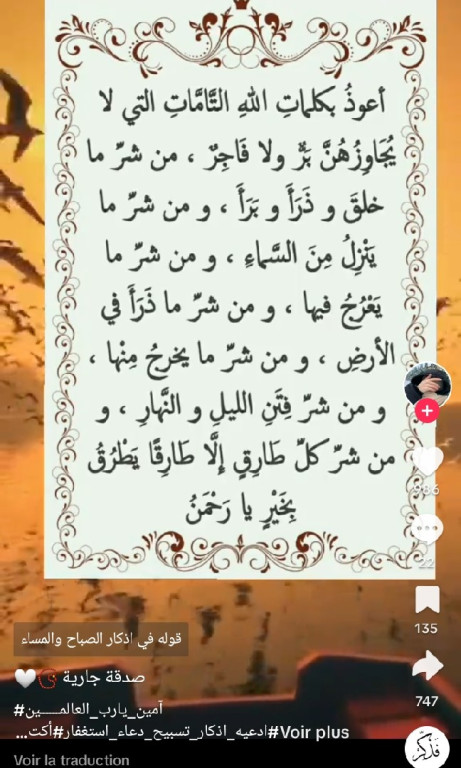 أعوذُ بكلماتِ اللهِ التَّامَّاتِ التي لا
يُجَاوِزُهُنَّ بَرٌّ ولا فَاجِرٌ ، من شرِّ ما
خلقَ و ذَرَأَ و بَرَأَ ، و من شرِّ ما
يَنْزِلُ مِنَ السَّماءِ ، و من شرِّ ما
يَعْرُجُ فيها ، و من شرِّ ما ذَرَأَ في
الأرضِ ، و من شرِّ ما يخرجُ مِنْها ،
و من شرِّ فِتَنِ الليلِ و النَّهارِ ، و
من شرِّ كلِّ طَارِقٍ إلَّا طَارِقًا يَطْرُقُ
بِخَيْرٍ يا رَحْمَنُ
986
22
135
747
قوله في اذكار الصباح والمساء
صدقة جارية
#آمين_يارب_العالمـــــين
#ادعيه_اذكار_تسبيح_دعاء_استغفار#أكت... Voir plus
Voir la traduction
فَذَكِّرْ